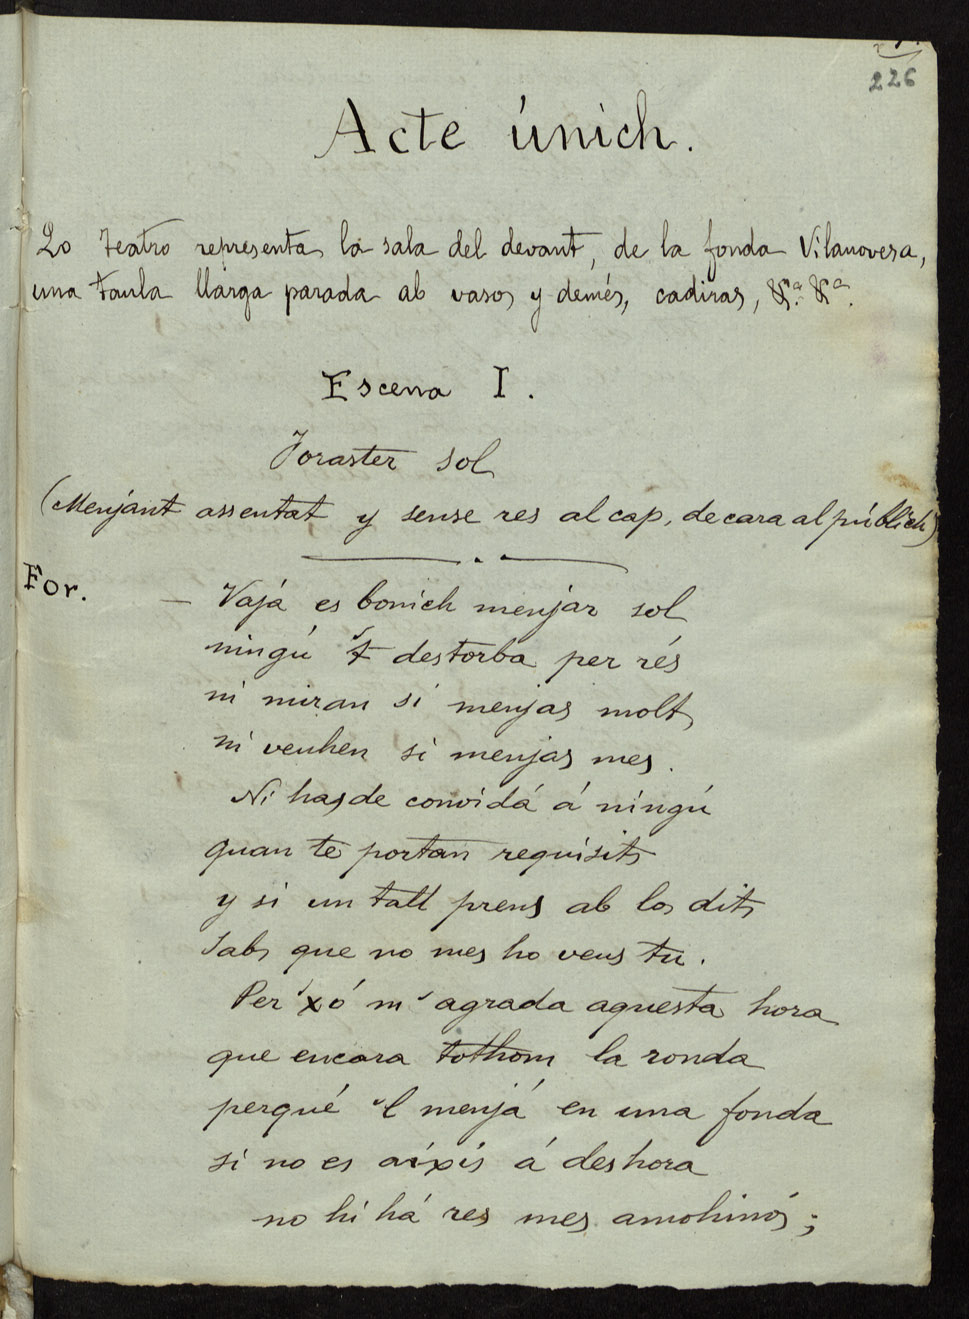 226
Acte únich.
Lo teatro representa la sala del devant, de la fonda Vilanovesa,
una taula llarga parada ab vasos y demés, cadiras, &ª. &ª.
Escena I.
Foraster sol
(Menjant assentat y sense res al cap, de cara al públich)
For. — Vajá es bonich menjar sol
ningú 't destorba per rés
ni miran si menjas molt
ni veuhen si menjas mes.
Ni has de convidá á ningú
quan te portan requisits
y si un tall prens ab los dits
Sabs que no mes ho veus tu.
Per 'xó m' agrada aquesta hora
que encara tothom la ronda
perqué 'l menjá en una fonda
si no es aixis á deshora
no hi há res mes amohinós;